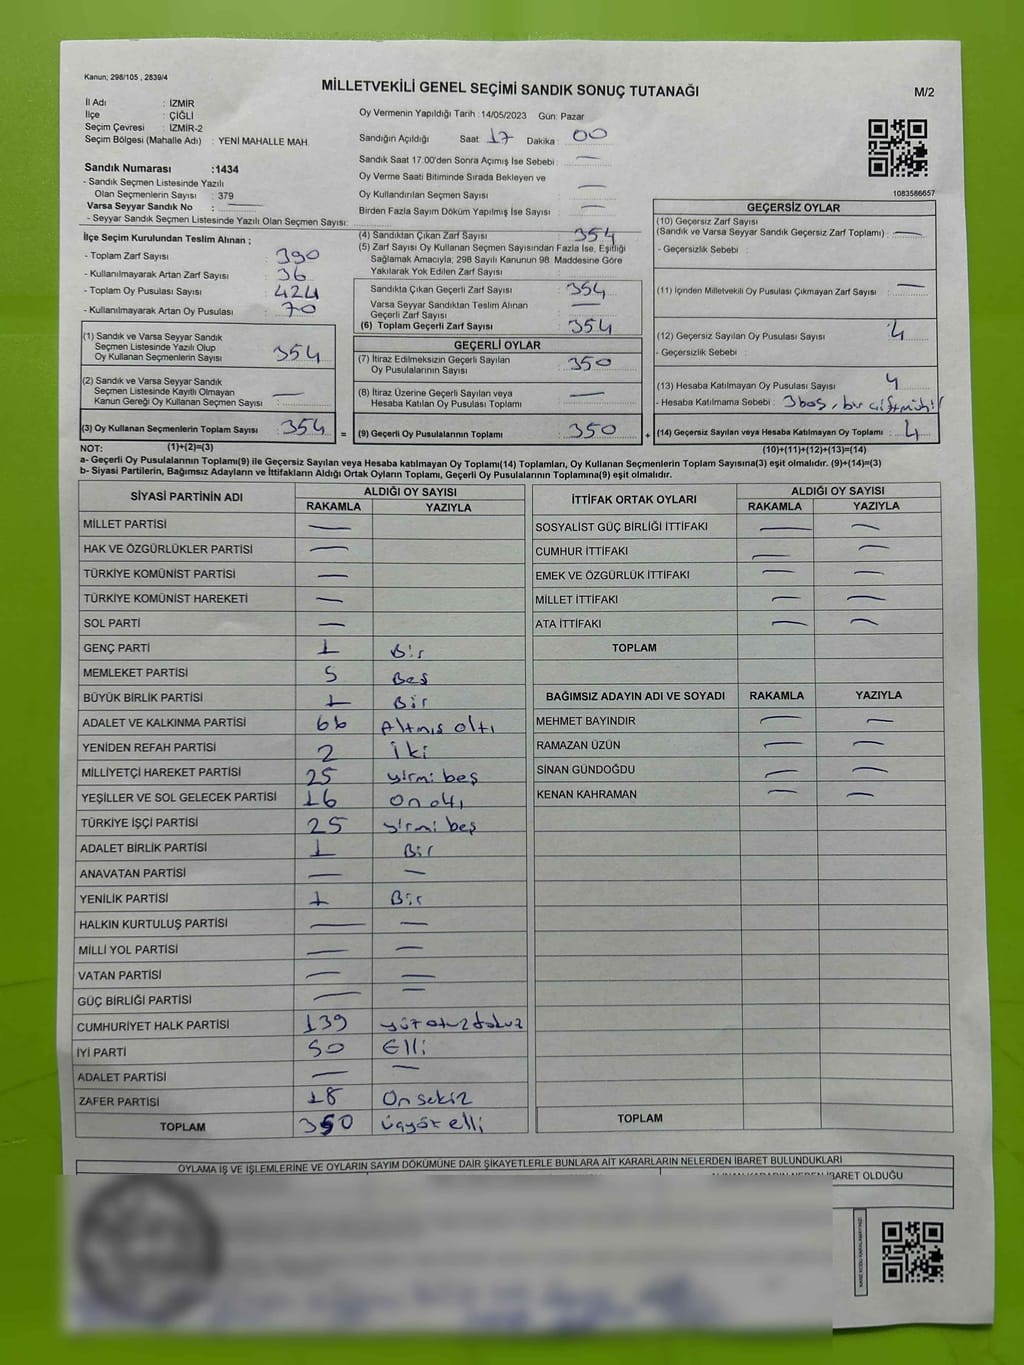 Kanun: 298/105 , 2839/4
MİLLETVEKİLİ GENEL SEÇİMİ SANDIK SONUÇ TUTANAĞI
M/2
İl Adı : İZMİR
İlçe : ÇİĞLİ
Seçim Çevresi : İZMİR-2
Seçim Bölgesi (Mahalle Adı) : YENİ MAHALLE MAH.
Sandık Numarası :1434
- Sandık Seçmen Listesinde Yazılı
Olan Seçmenlerin Sayısı : 379
Varsa Seyyar Sandık No : —
- Seyyar Sandık Seçmen Listesinde Yazılı Olan Seçmen Sayısı:
Oy Vermenin Yapıldığı Tarih :14/05/2023 Gün: Pazar
Sandığın Açıldığı Saat 17 Dakika : 00
Sandık Saat 17:00'den Sonra Açımış İse Sebebi : —
Oy Verme Saati Bitiminde Sırada Bekleyen ve
Oy Kullandırılan Seçmen Sayısı : —
Birden Fazla Sayım Döküm Yapılmış İse Sayısı : —
1083586657
İlçe Seçim Kurulundan Teslim Alınan ;
- Toplam Zarf Sayısı : 390
- Kullanılmayarak Artan Zarf Sayısı : 36
- Toplam Oy Pusulası Sayısı : 424
- Kullanılmayarak Artan Oy Pusulası : 70
(1) Sandık ve Varsa Seyyar Sandık
Seçmen Listesinde Yazılı Olup
Oy Kullanan Seçmenlerin Sayısı : 354
(2) Sandık ve Varsa Seyyar Sandık
Seçmen Listesinde Kayıtlı Olmayan
Kanun Gereği Oy Kullanan Seçmen Sayısı: —
(3) Oy Kullanan Seçmenlerin Toplam Sayısı : 354
(4) Sandıktan Çıkan Zarf Sayısı : 354
(5) Zarf Sayısı Oy Kullanan Seçmen Sayısından Fazla İse, Eşitliği
Sağlamak Amacıyla, 298 Sayılı Kanunun 98. Maddesine Göre
Yakılarak Yok Edilen Zarf Sayısı :
Sandıkta Çıkan Geçerli Zarf Sayısı : 354
Varsa Seyyar Sandıktan Teslim Alınan
Geçerli Zarf Sayısı : —
(6) Toplam Geçerli Zarf Sayısı : 354
GEÇERLİ OYLAR
(7) İtiraz Edilmeksizin Geçerli Sayılan
Oy Pusulalarının Sayısı : 350
(8) İtiraz Üzerine Geçerli Sayılan veya
Hesaba Katılan Oy Pusulası Toplamı : —
= (9) Geçerli Oy Pusulalarının Toplamı : 350
GEÇERSİZ OYLAR
(10) Geçersiz Zarf Sayısı
(Sandık ve Varsa Seyyar Sandık Geçersiz Zarf Toplamı) : —
- Geçersizlik Sebebi :
(11) İçinden Milletvekili Oy Pusulası Çıkmayan Zarf Sayısı : —
(12) Geçersiz Sayılan Oy Pusulası Sayısı : 4
- Geçersizlik Sebebi :
(13) Hesaba Katılmayan Oy Pusulası Sayısı : 4
- Hesaba Katılmama Sebebi : 3 boş, bir çift mühür
+ (14) Geçersiz Sayılan veya Hesaba Katılmayan Oy Toplamı : 4
NOT: (1)+(2)=(3) (10)+(11)+(12)+(13)=(14)
a- Geçerli Oy Pusulalarının Toplamı(9) ile Geçersiz Sayılan veya Hesaba katılmayan Oy Toplamı(14) Toplamları, Oy Kullanan Seçmenlerin Toplam Sayısına(3) eşit olmalıdır. (9)+(14)=(3)
b- Siyasi Partilerin, Bağımsız Adayların ve İttifakların Aldığı Ortak Oyların Toplamı, Geçerli Oy Pusulalarının Toplamına(9) eşit olmalıdır.
SİYASİ PARTİNİN ADI ALDIĞI OY SAYISI
RAKAMLA YAZIYLA
MİLLET PARTİSİ —
HAK VE ÖZGÜRLÜKLER PARTİSİ —
TÜRKİYE KOMÜNİST PARTİSİ —
TÜRKİYE KOMÜNİST HAREKETİ —
SOL PARTİ —
GENÇ PARTİ 1 Bir
MEMLEKET PARTİSİ 5 Beş
BÜYÜK BİRLİK PARTİSİ 1 Bir
ADALET VE KALKINMA PARTİSİ 66 Altmış altı
YENİDEN REFAH PARTİSİ 2 İki
MİLLİYETÇİ HAREKET PARTİSİ 25 yirmi beş
YEŞİLLER VE SOL GELECEK PARTİSİ 16 On altı
TÜRKİYE İŞÇİ PARTİSİ 25 yirmi beş
ADALET BİRLİK PARTİSİ 1 Bir
ANAVATAN PARTİSİ — —
YENİLİK PARTİSİ 1 Bir
HALKIN KURTULUŞ PARTİSİ — —
MİLLİ YOL PARTİSİ — —
VATAN PARTİSİ — —
GÜÇ BİRLİĞİ PARTİSİ — —
CUMHURİYET HALK PARTİSİ 139 yüz otuz dokuz
İYİ PARTİ 50 Elli
ADALET PARTİSİ — —
ZAFER PARTİSİ 18 On sekiz
TOPLAM 350 üçyüz elli
İTTİFAK ORTAK OYLARI ALDIĞI OY SAYISI
RAKAMLA YAZIYLA
SOSYALİST GÜÇ BİRLİĞİ İTTİFAKI — —
CUMHUR İTTİFAKI — —
EMEK VE ÖZGÜRLÜK İTTİFAKI — —
MİLLET İTTİFAKI — —
ATA İTTİFAKI — —
TOPLAM
BAĞIMSIZ ADAYIN ADI VE SOYADI RAKAMLA YAZIYLA
MEHMET BAYINDIR — —
RAMAZAN ÜZÜN — —
SİNAN GÜNDOĞDU — —
KENAN KAHRAMAN — —
TOPLAM
OYLAMA İŞ VE İŞLEMLERİNE VE OYLARIN SAYIM DÖKÜMÜNE DAİR ŞİKAYETLERLE BUNLARA AİT KARARLARIN NELERDEN İBARET BULUNDUKLARI
ALINAN KARARIN NEDEN İBARET OLDUĞU